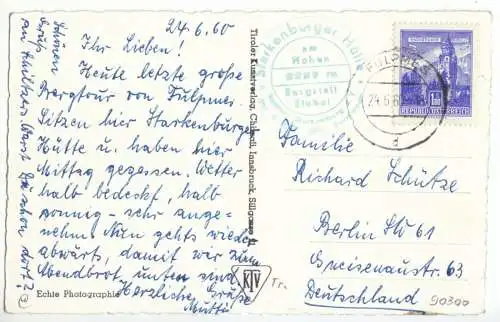 24.6.60
Ihr Lieben!
Heute letzte große
Bergtour von Fulpmes.
Sitzen hier Starkenburger
Hütte u. haben hier
Mittag gegessen. Wetter
halb bedeckt, halb
sonnig - sehr ange-
nehm. Nun gehts wieder
abwärts, damit wir zum
Abendbrot unten sind.
Herzliche Grüße
Mutti
Schönen
Gruß
an
schon dort?
Echte Photographie
Tiroler Kunstverlag, Chizzali, Innsbruck, Sillgasse 11
KTV
Tr.
Starkenburger Hütte
am
Hohen
Burgstall
Stubai
FULPMES
24.6.60
REPUBLIK ÖSTERREICH
Familie
Richard Schütze
Berlin SW 61
Gneisenaustr. 63
Deutschland
90300